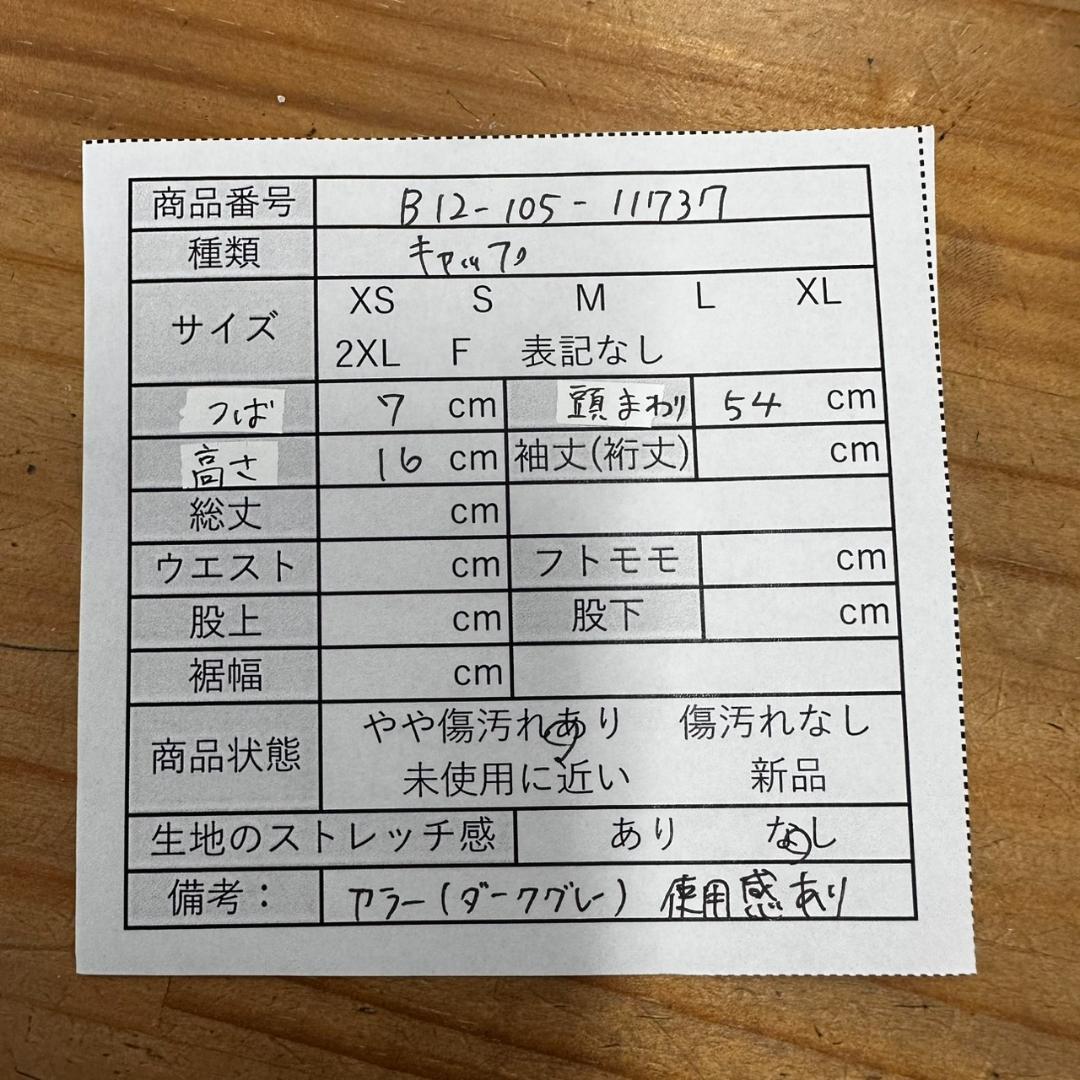 商品番号 B12-105-11737
種類 キャップ
サイズ XS S M L XL
2XL F 表記なし
つば 7 cm 頭まわり 54 cm
高さ 16 cm 袖丈(裄丈) cm
総丈 cm
ウエスト cm フトモモ cm
股上 cm 股下 cm
裾幅 cm
商品状態 やや傷汚れあり 傷汚れなし
未使用に近い 新品
生地のストレッチ感 あり なし
備考: カラー(ダークグレー) 使用感あり